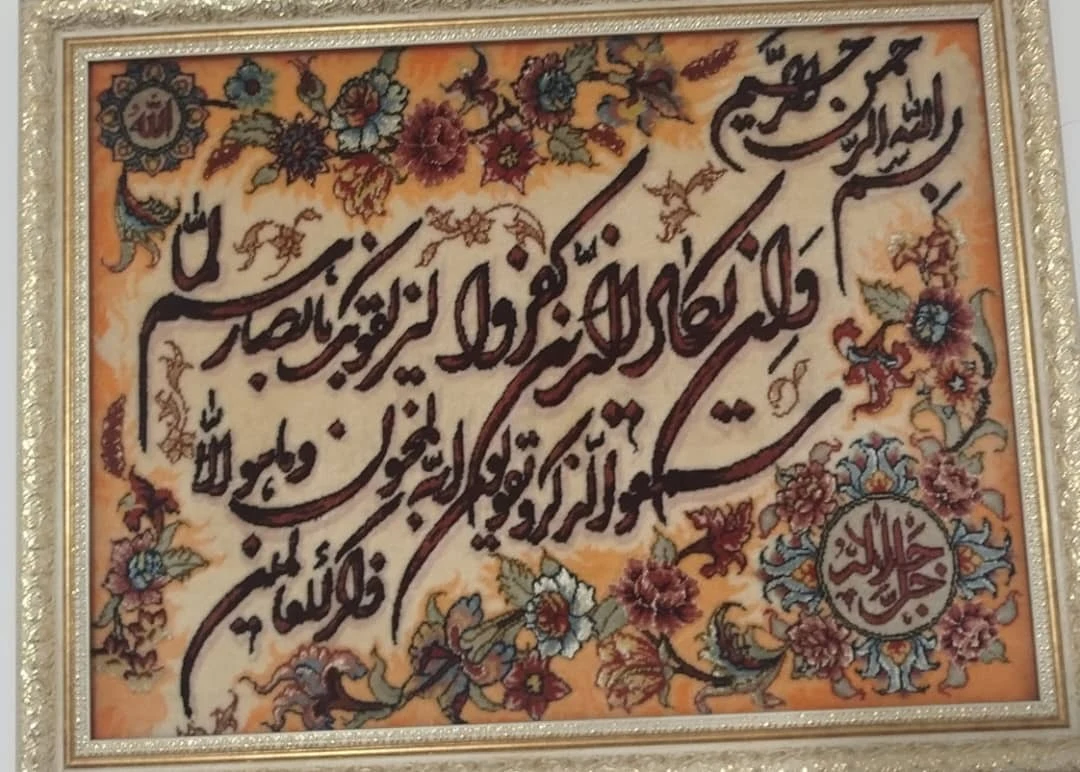 بسم الله الرحمن الرحيم
الله
وَإِن يكاد الذين كفروا ليزلقونك بابصارهم لما
سمعوا الذكر و يقولون انه لمجنون وما هو الا
ذكر للعالمين
جل جلاله